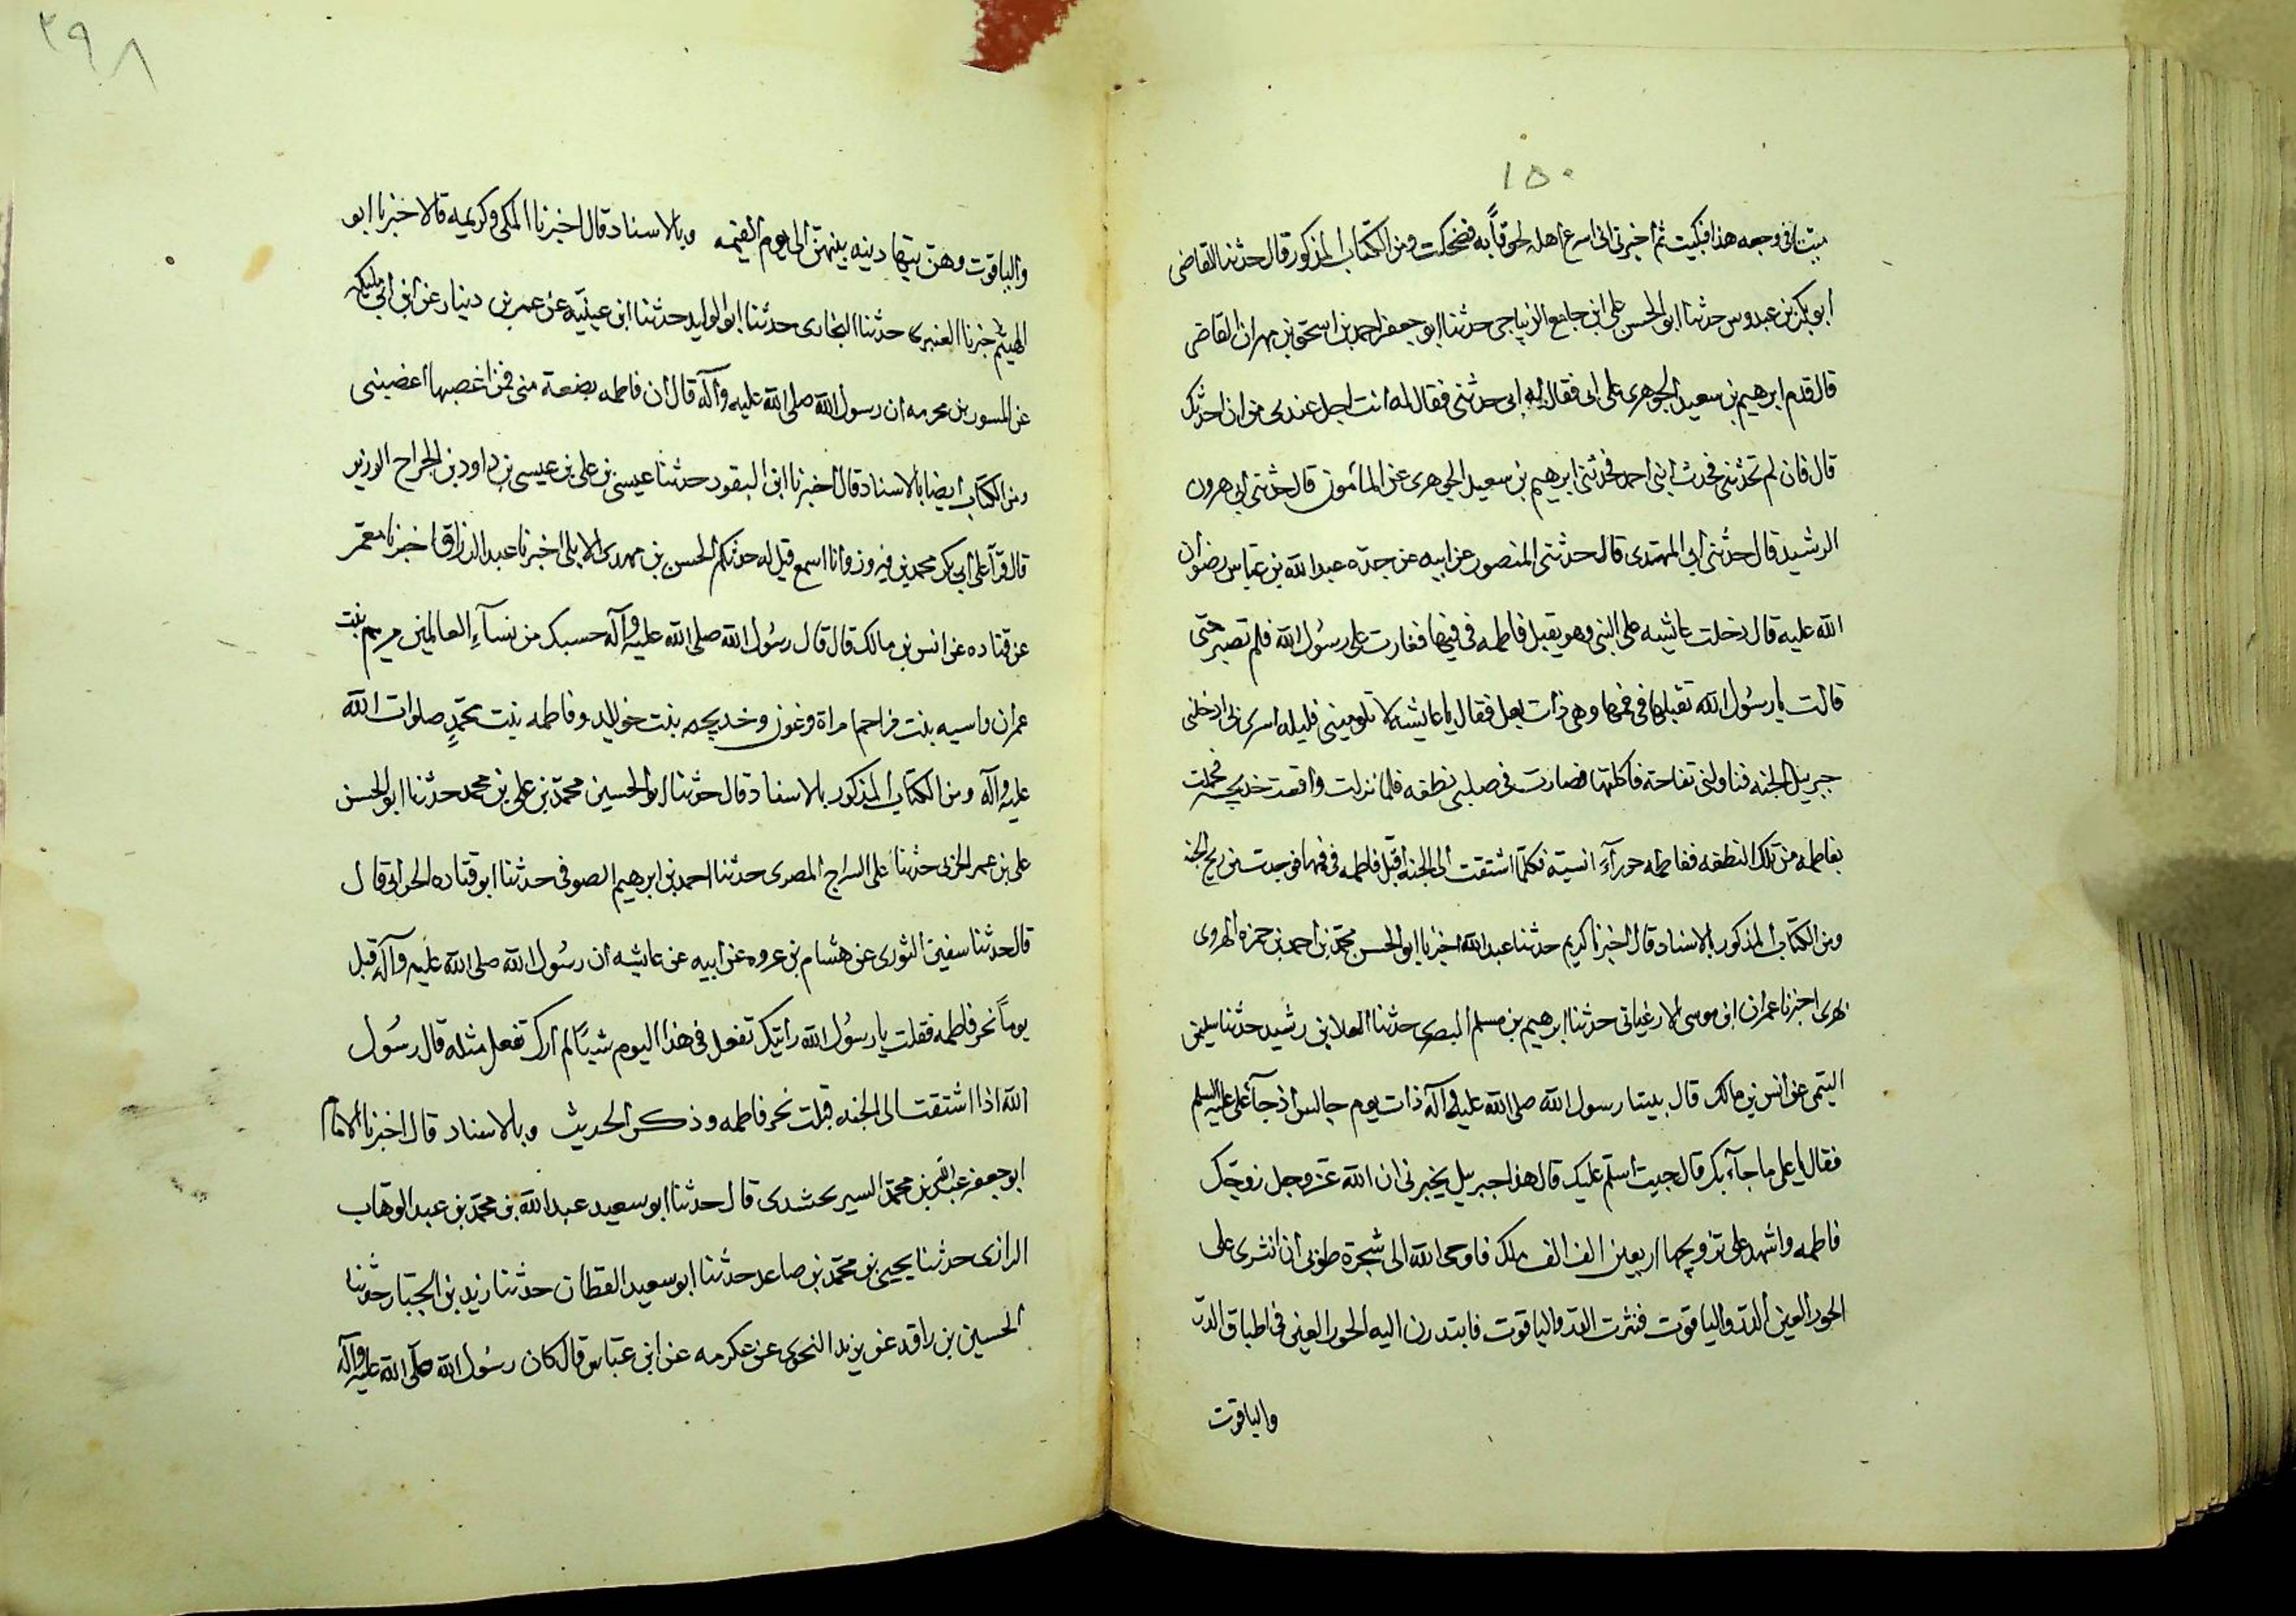 ١٥٠
في وجعه هذا فبكيت ثم اخبرني اني اسرع اهله لحوقاً به فضحكت ومن الكتاب المذكور قال حدثنا القاضى
أبو بكر بن عبدوس حدثنا ابو الحسن على ابن جامع الزباجى حدثنا ابو جعفر احمد بن اسحق بن مهران القاضى
قال قدم ابرهيم بن سعيد الجوهرى على ابى فقال له ابى حدثنى فقال له أنت اجل عندى من ان احدثك
قال فان لم تحدثنى فحدث ابنى احمد فحدثنى ابرهيم بن سعيد الجوهرى عن المأمون قال حدثنى ابى هرون
الرشيد قال حدثنى أبى المهتدى قال حدثنى المنصور عن ابيه عن جده عبد الله بن عباس رضوان
الله عليه قال دخلت عائشه على النبى وهو يقبل فاطمه فى فيها فغارت على رسُول الله فلم تصبر حتى
قالت يا رسُول الله تقبلها فى فمها وهى ذات بعل فقال يا عائشه لا تلومينى فليله اسرى بى ادخلنى
جبريل الجنه فناولنى تفاحته فاكلتها فصارت فى صلبى نطفه فلما نزلت واقعت خديجه فحملت
بفاطمه من تلك النطفه ففاطمه حورآء انسيته فكلما اشتقت الى الجنة اقبل فاطمه فى فمها فوجدت من ريح الجنه
ومن الكتاب المذكور بالاسناد قال اخبرنا كريم حدثنا عبد الله اخبرنا ابو الحسن محمد بن احمد بن حمزه الهروى
اخبرنا عمران ابن موسى الارغيانى حدثنا ابرهيم بن مسلم البصرى حدثنا العلا بن رشيد حدثنا سليمن
التيمى عن انس بن مالك قال بينا رسول الله صلى الله عليه وآله ذات يوم جالس اذ جآء على عليه السلم
فقال يا على ما جآء بك قال جيت اسلم عليك قال هذا جبريل يخبرنى ان الله عز وجل زوجك
فاطمه واشهد على تزويجها اربعين الف الف ملك فاوحى الله الى شجرة طوبى أن انثرى على
الحور العين الدر والياقوت فنثرت الدر والياقوت فابتدرن اليه الحور العين فى اطباق الدر
والياقوت
٢٩٨
والياقوت وهن يتهادينه بينهن الى يوم القيمه وبالاسناد قال اخبرنا المكى وكريمه قالا اخبرنا ابو
الهيثم خبرنا حدثنا البخارى حدثنا ابو الوليد حدثنا ابن عيينه عن عمر بن دينار عن ابن ابى مليكه
عن المسور بن محرمه ان رسول الله صلى الله عليه وآله قال ان فاطمه بضعة منى فمن اغضبها اغضبنى
ومن الكتاب أيضا بالاسناد قال اخبرنا ابن البقور حدثنا عيسى بن على بن عيسى بن داود بن الجراح الوزير
قال قرأ على أبى بكر محمد بن فيروز وانا اسمع قيل له حدثكم الحسن بن مهدى الابلى اخبرنا عبد الرزاق اخبرنا معمر
عن قتاده عن انس بن مالك قال قال رسُول الله صلى الله عليه وآله حسبك من نسآء العالمين مريم بنت
عمران واسيه بنت مزاحم امراة فرعون وخديجه بنت خويلد وفاطمه بنت محمدٍ صلوات الله
عليه وآله ومن الكتاب المذكور بالاسناد قال حدثنا ابو الحسين محمد بن على بن محمد حدثنا ابو الحسن
على بن عمر الحربى حدثنا على السراج المصرى حدثنا احمد بن ابرهيم الصوفى حدثنا ابو قتاده الحرانى قال
قال حدثنا سفين الثورى عن هشام بن عروه عن أبيه عن عائشه ان رسُول الله صلى الله عليه وآله قبل
يوماً نحر فاطمه فقلت يا رسُول الله رأيتك تفعل فى هذا اليوم شيئاً لم أرك تفعل مثله قال رسُول
الله اذا اشتقت الى الجنه قبلت نحر فاطمه وذكر الحديث وبالاسناد قال اخبرنا الامام
ابو جعفر عبد الله بن محمد قال حدثنا ابو سعيد عبد الله بن محمد بن عبد الوهاب
الرازى حدثنا يحيى بن محمد بن صاعد حدثنا ابو سعيد القطان حدثنا زيد بن الجبار حدثنا
الحسين بن راقد عن يزيد النحوى عن عكرمه عن ابن عباس قال كان رسُول الله صلى الله عليه وآله